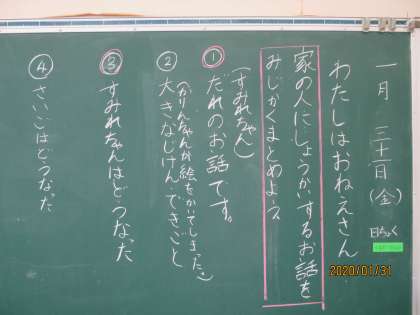 一月 三十一日(金)
日ちょく
わたしはおねえさん
家の人にしょうかいするお話を
みじかくまとめよう
(すみれちゃん)
①だれのお話です。
②大きなじけん・できごと
(かりんちゃんが絵をかいてしまった)
③すみれちゃんはどうなった
④さいごはどうなった
2020/01/31